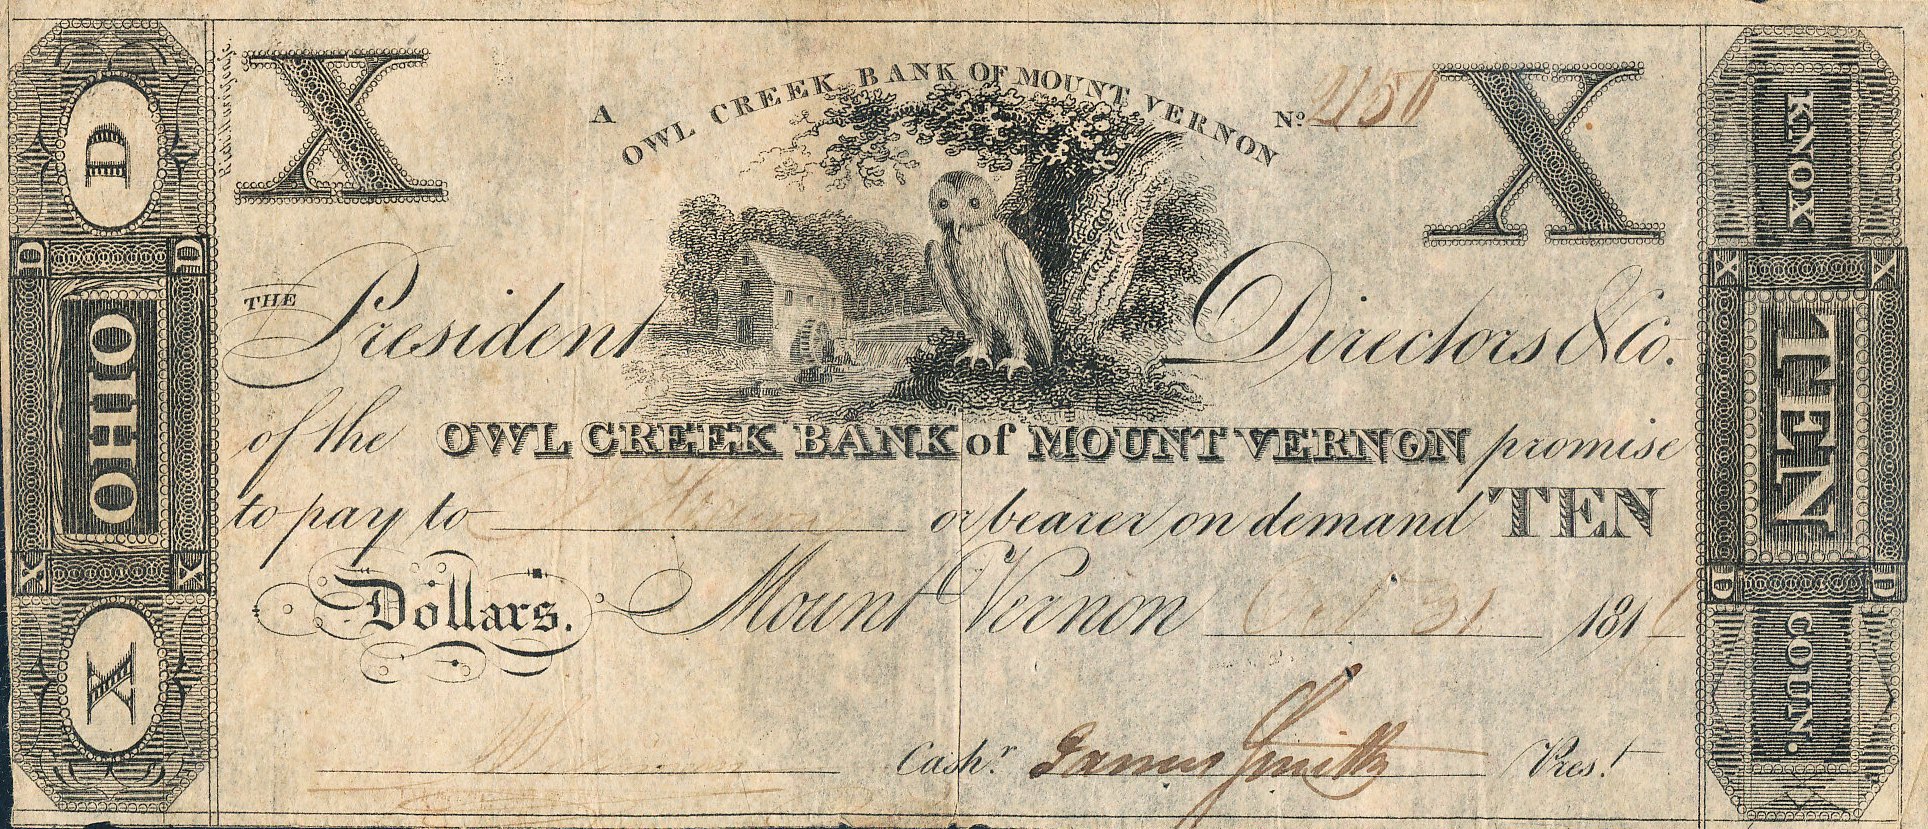 OWL CREEK BANK OF MOUNT VERNON
X
A
Nº 2150
X
THE President Directors & Co.
of the OWL CREEK BANK of MOUNT VERNON promise
to pay to or bearer on demand TEN
Dollars. Mount Vernon Oct 31 1816
Cashr. James Smith Prest
D
D D
OHIO
X X
X
KNOX
X X
TEN
D D
COUN.